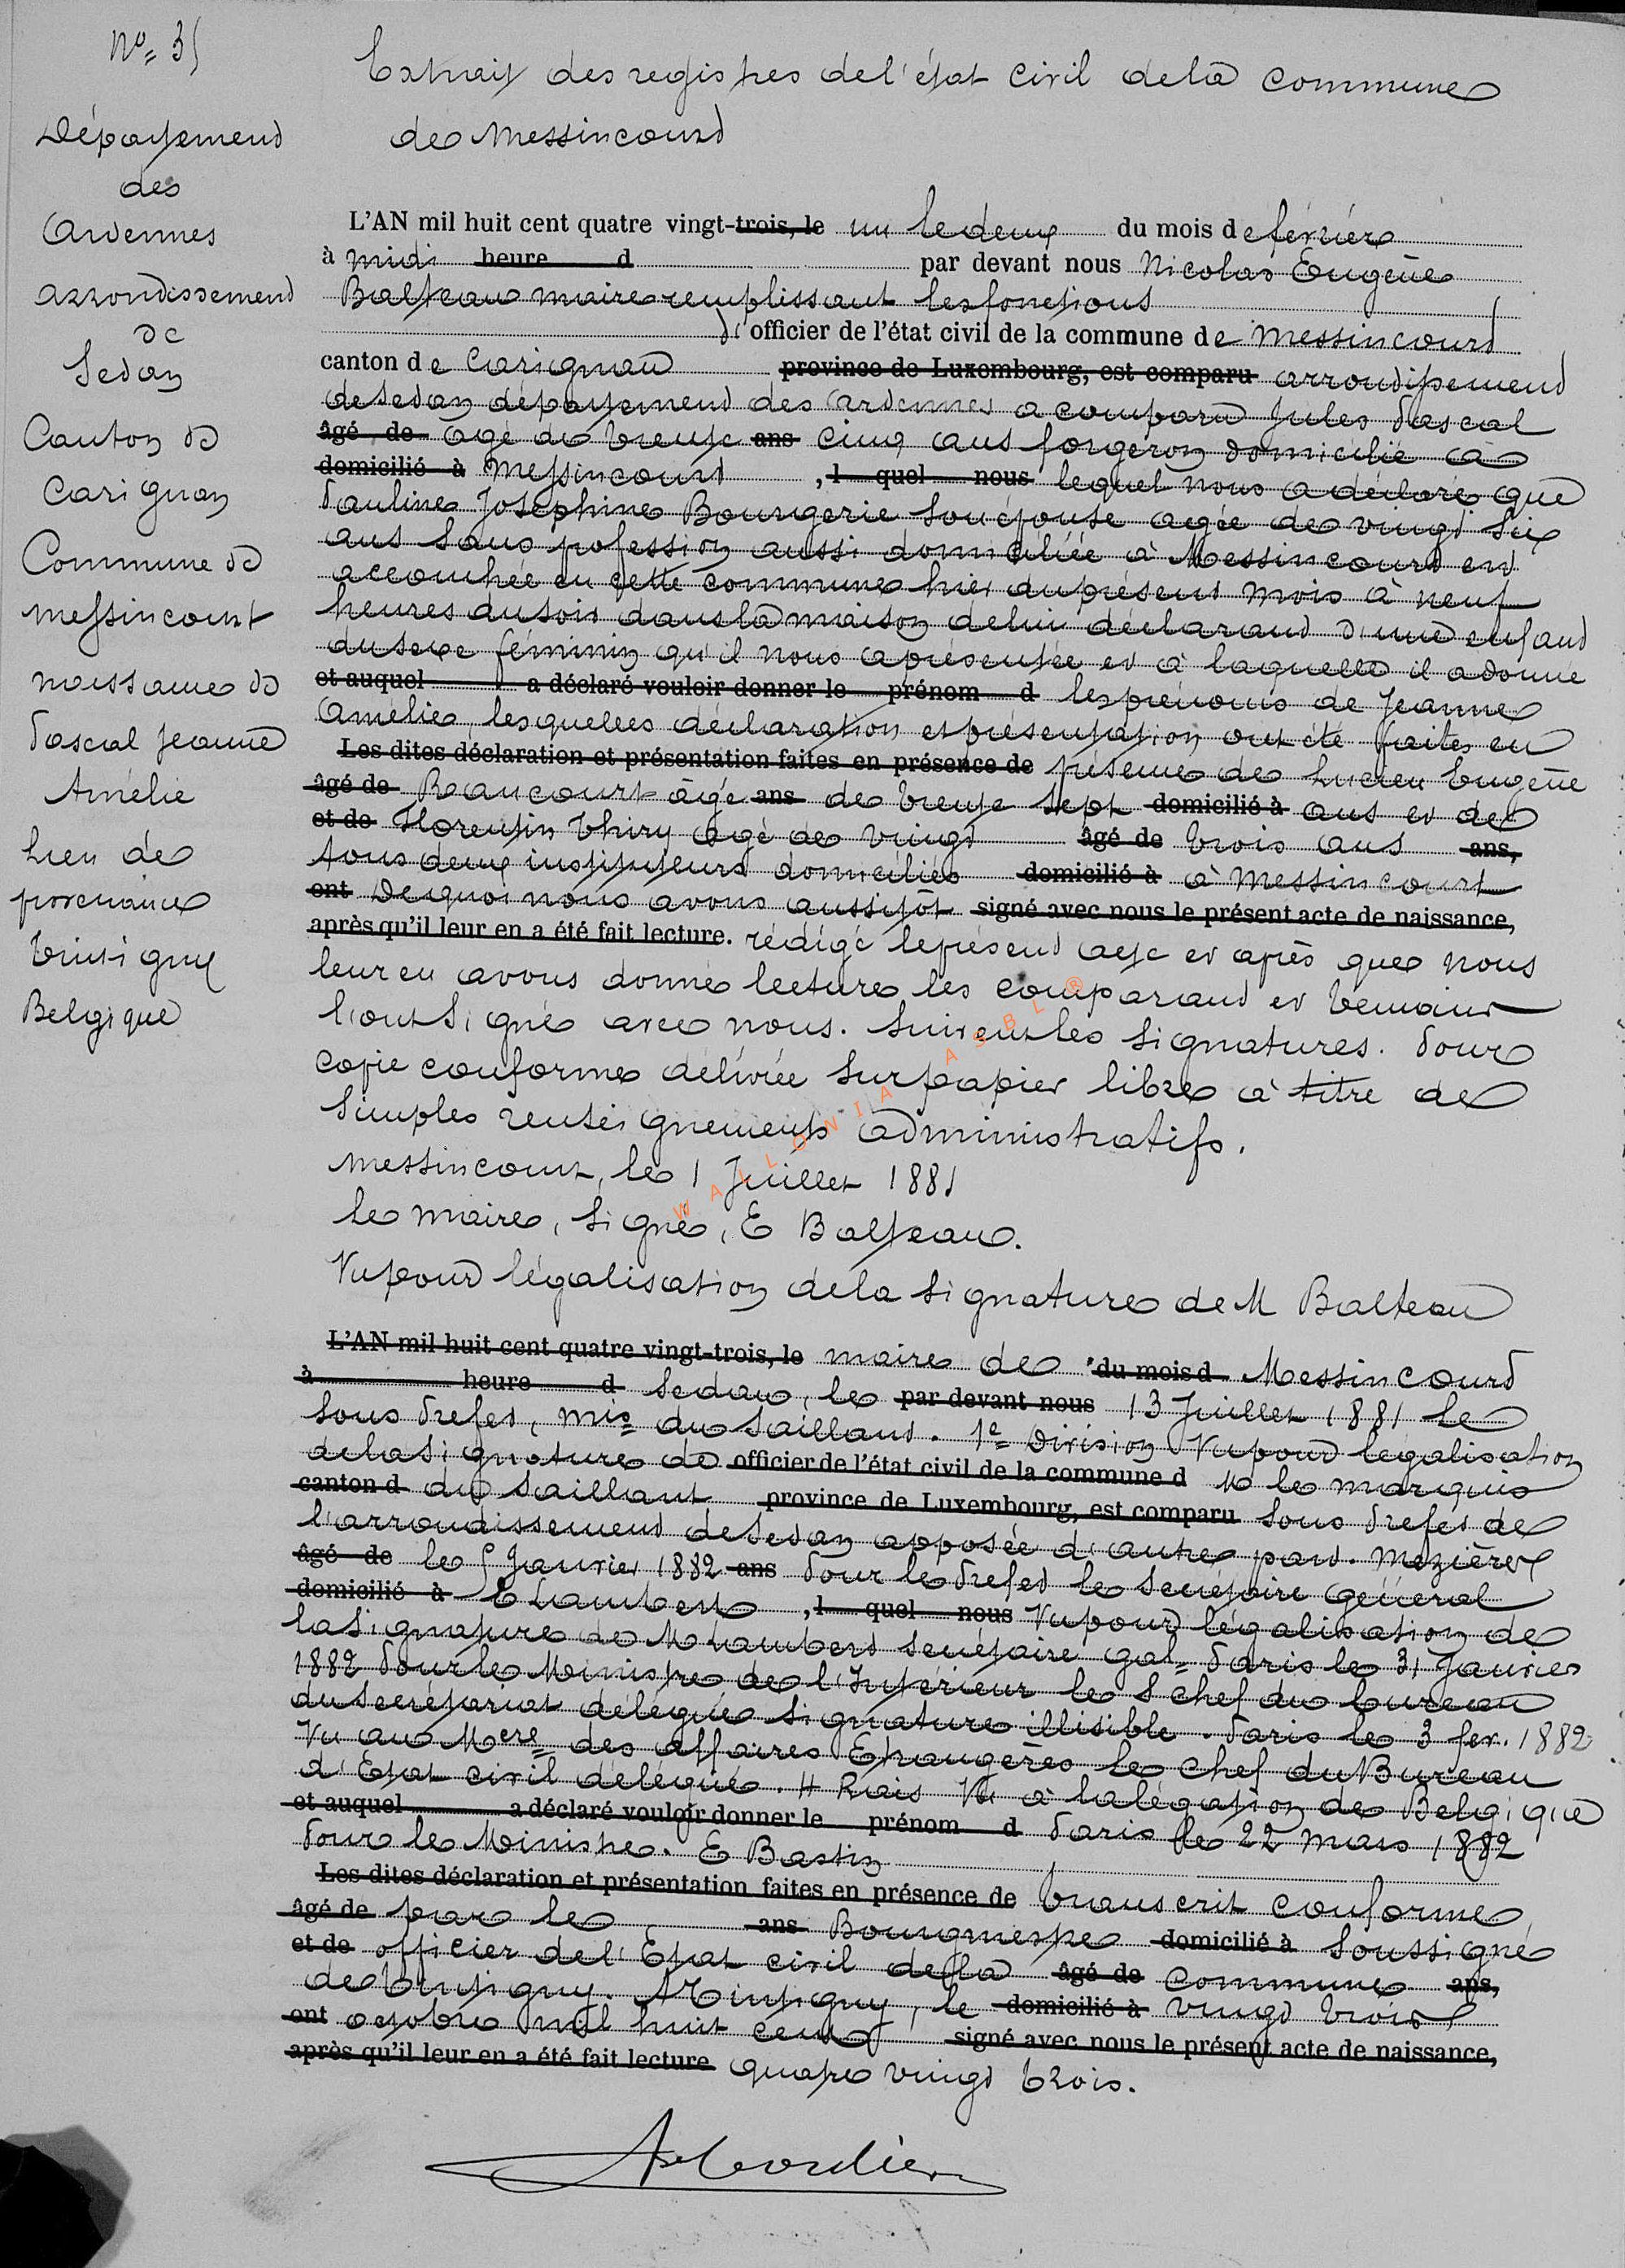 Nº= 35
Département
des
Ardennes
arrondissement
de
Sedan
Canton de
Carignan
Commune de
Messincourt
naissance de
Pascal Jeanne
Amélie
Lieu de
provenance
Tintigny
Belgique
Extrait des registres de l'état civil de la commune
de Messincourt
L'AN mil huit cent quatre vingt-trois, le un le deux du mois de février
à midi heure d par devant nous Nicolas Eugène
Balteau maire remplissant les fonctions
d'officier de l'état civil de la commune de Messincourt
canton de Carignan province de Luxembourg, est comparu arrondissement
de Sedan département des Ardennes a comparu Jules Pascal
âgé de agé de trente ans cinq ans forgeron domicilié à
domicilié à Messincourt , l quel nous lequel nous a déclaré que
Pauline Joséphine Bourgerie son épouse agée de vingt six
ans sans pofession aussi domiciliée à Messincourt est
accouchée en cette commune hier du présent mois à neuf
heures du soir dans la maison de lui déclarant d'une enfant
du sexe féminin qu'il nous a présentée et à laquelle il a donné
et auquel a déclaré vouloir donner le prénom d les prénoms de Jeanne
Amélie, lesquelles déclaration et présentation ont été faites en
Les dites déclaration et présentation faites en présence de présence de Lucien Eugène
âgé de Raucourt âgé ans de trente sept domicilié à ans et de
et de Florentin Thiry agé de vingt âgé de trois ans ans,
tous deux instituteurs domiciliés domicilié à à Messincourt
ont Desquoi nous avons aussitôt signé avec nous le présent acte de naissance,
après qu'il leur en a été fait lecture. rédigé le présent acte et après que nous
leur en avons donné lecture les comparant et temoins
l'ont signé avec nous. Suivent les signatures. Pour
copie conforme délivrée sur papier libre à titre de
simples renseignements administratifs.
Messincourt, le 1 Juillet 1881
Le maire, signé, E Balteau.
Vu pour légalisation de la signature de M Balteau
L'AN mil huit cent quatre vingt-trois, le maire de du mois d Messincourt
à heure d Sedan, le par devant nous 13 Juillet 1881 Le
Sous Prefet, Mis du Saillant. 1e Division Vu pour légalisation
de la signature de officier de l'état civil de la commune d M le marquis
canton d du Saillant province de Luxembourg, est comparu Sous Prefet de
l'arrondissement de Sedan apposée d'autre part. Mezières
âgé de le 5 Janvier 1882 ans Pour le Prefet le secrétaire général
domicilié à E Lambert , l quel nous Vu pour légalisation de
la signature de M Lambert secrétaire gal= Paris le 31 Janvier
1882 Pour le Ministre de l'Intérieur le S chef du bureau
du secrétariat délégué signature illisible. Paris le 3 fev. 1882
Vu au Mere des affaires Etrangères le chef du Bureau
d'Etat civil délégué. H Riais Vu à la légation de Belgique
et auquel a déclaré vouloir donner le prénom d Paris le 22 Mars 1882
Pour le Ministre. E Bastin
Les dites déclaration et présentation faites en présence de transcrit conforme
âgé de par le ans Bourgmestre domicilié à soussigné
et de officier de l'Etat civil de la âgé de commune ans,
de Tintigny. A Tintigny, le domicilié à vingt trois
ont octobre mil huit cent signé avec nous le présent acte de naissance,
après qu'il leur en a été fait lecture quatre vingt trois.
WALLONIA ASBL ®